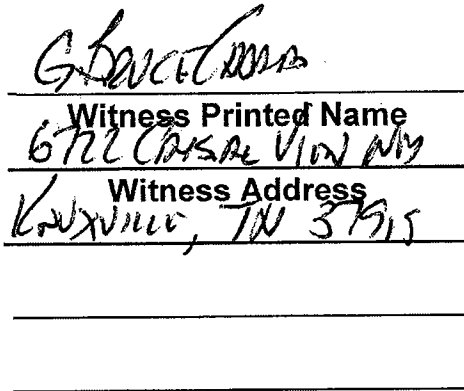 G Bruce
Witness Printed Name
6722 Crystal View Way
Witness Address
Knoxville, TN 37919